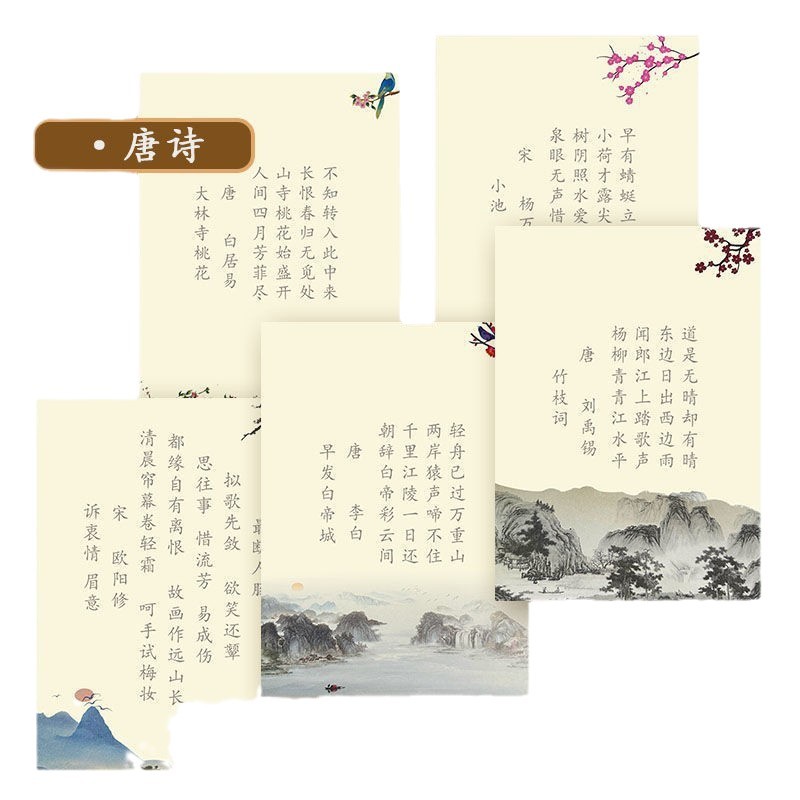 ·唐诗
大林寺桃花
唐 白居易
人间四月芳菲尽
山寺桃花始盛开
长恨春归无觅处
不知转入此中来
小池
宋 杨万
泉眼无声惜
树阴照水爱
小荷才露尖
早有蜻蜓立
竹枝词
唐 刘禹锡
杨柳青青江水平
闻郎江上踏歌声
东边日出西边雨
道是无晴却有晴
早发白帝城
唐 李白
朝辞白帝彩云间
千里江陵一日还
两岸猿声啼不住
轻舟已过万重山
诉衷情 眉意
宋 欧阳修
清晨帘幕卷轻霜 呵手试梅妆
都缘自有离恨 故画作远山长
思往事 惜流芳 易成伤
拟歌先敛 欲笑还颦
最断人